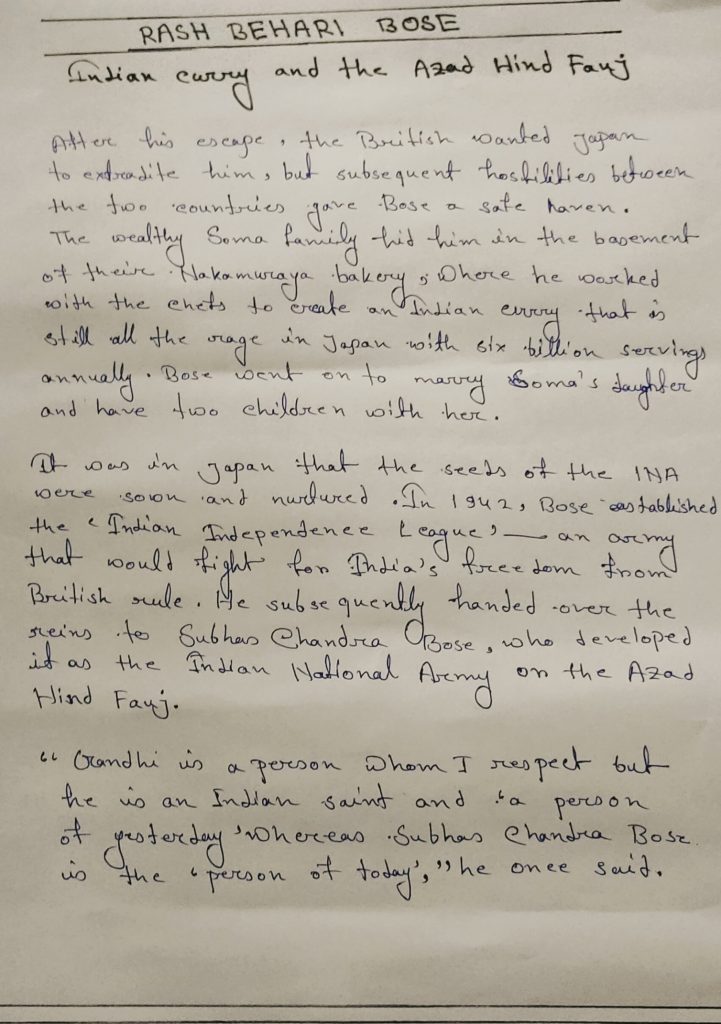 RASH BEHARI BOSE
Indian curry and the Azad Hind Fauj
After his escape, the British wanted Japan
to extradite him, but subsequent hostilities between
the two countries gave Bose a safe haven.
The wealthy Soma family hid him in the basement
of their Nakamuraya bakery, where he worked
with the chefs to create an Indian curry that is
still all the rage in Japan with six billion servings
annually. Bose went on to marry Soma's daughter
and have two children with her.
It was in Japan that the seeds of the INA
were sown and nurtured. In 1942, Bose established
the 'Indian Independence League' — an army
that would fight for India's freedom from
British rule. He subsequently handed over the
reins to Subhas Chandra Bose, who developed
it as the Indian National Army or the Azad
Hind Fauj.
"Gandhi is a person whom I respect but
he is an Indian saint and 'a person
of yesterday' whereas Subhas Chandra Bose
is the 'person of today'," he once said.